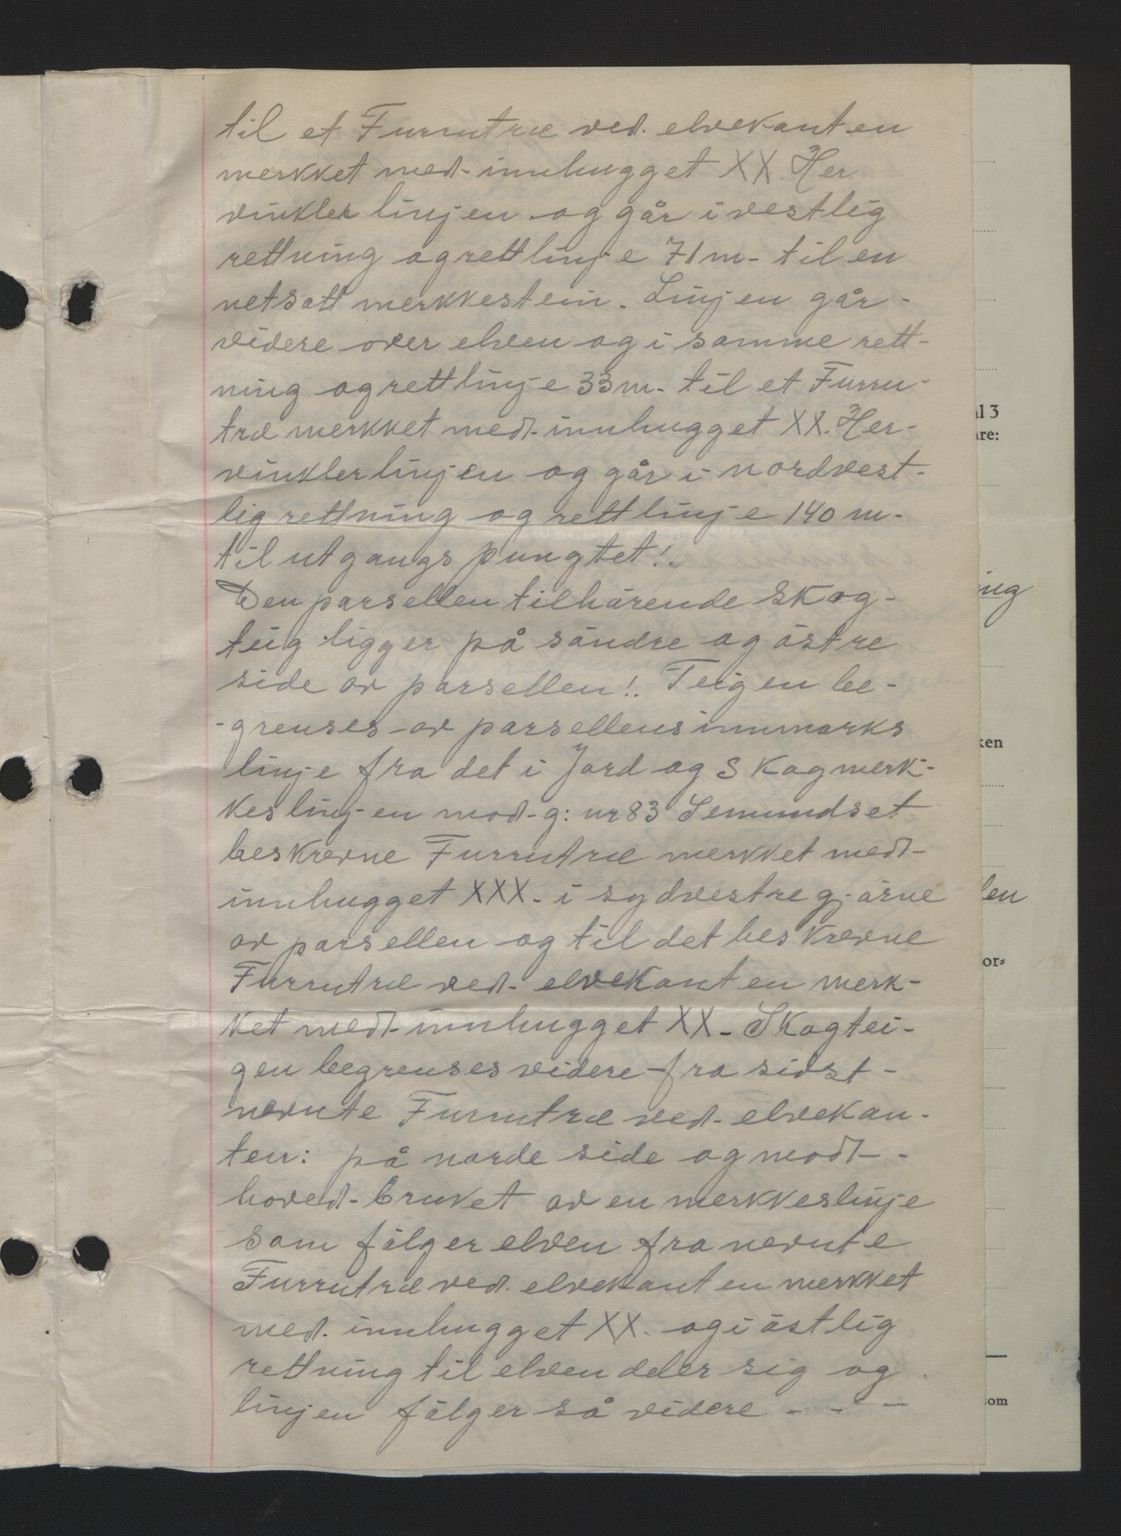 til et Furrutræ ved. elvekanten
merkket med- innhugget XX. Her
vinkler linjen og går i vestlig
rettning og rettlinje 71 m- til en
netsatt merkkestein. Linjen går-
videre over elven og i samme rett-
ning og rettlinje 33 m- til et Furru-
træ merkket medt innhugget XX. Her-
vinkler linjen og går i nordvest-
lig rettning og rettlinje 140 m-
til utgangs pungtet!.
Den parsellen tilhärende Skog-
teig ligger på söndre og östre
side av parsellen!. Teigen be-
-grenses av parsellens innmarks
linje fra det i Jord og Skogmerk-
keslinjen mod-g: nr 83 Semundset
beskrevne Furrutræ merkket medt-
innhugget XXX- i sydvestre gjörne
av parsellen og til det beskrevne
Furrutræ ved- elvekanten merk-
ket medt innhugget XX- Skogtei-
gen begrenses videre fra sidst-
nevnte Furrutræ ved- elvekan-
ten: på norde side og modt--
hoved-bruket av en merkkeslinje
som fölger elven fra nevnte
Furrutræ ved. elvekanten merkket
med. innhugget XX. og i östlig
rettning til elven deler sig og
linjen fölger så videre - - -
l 3
re:
ing
ken
len
or-
som